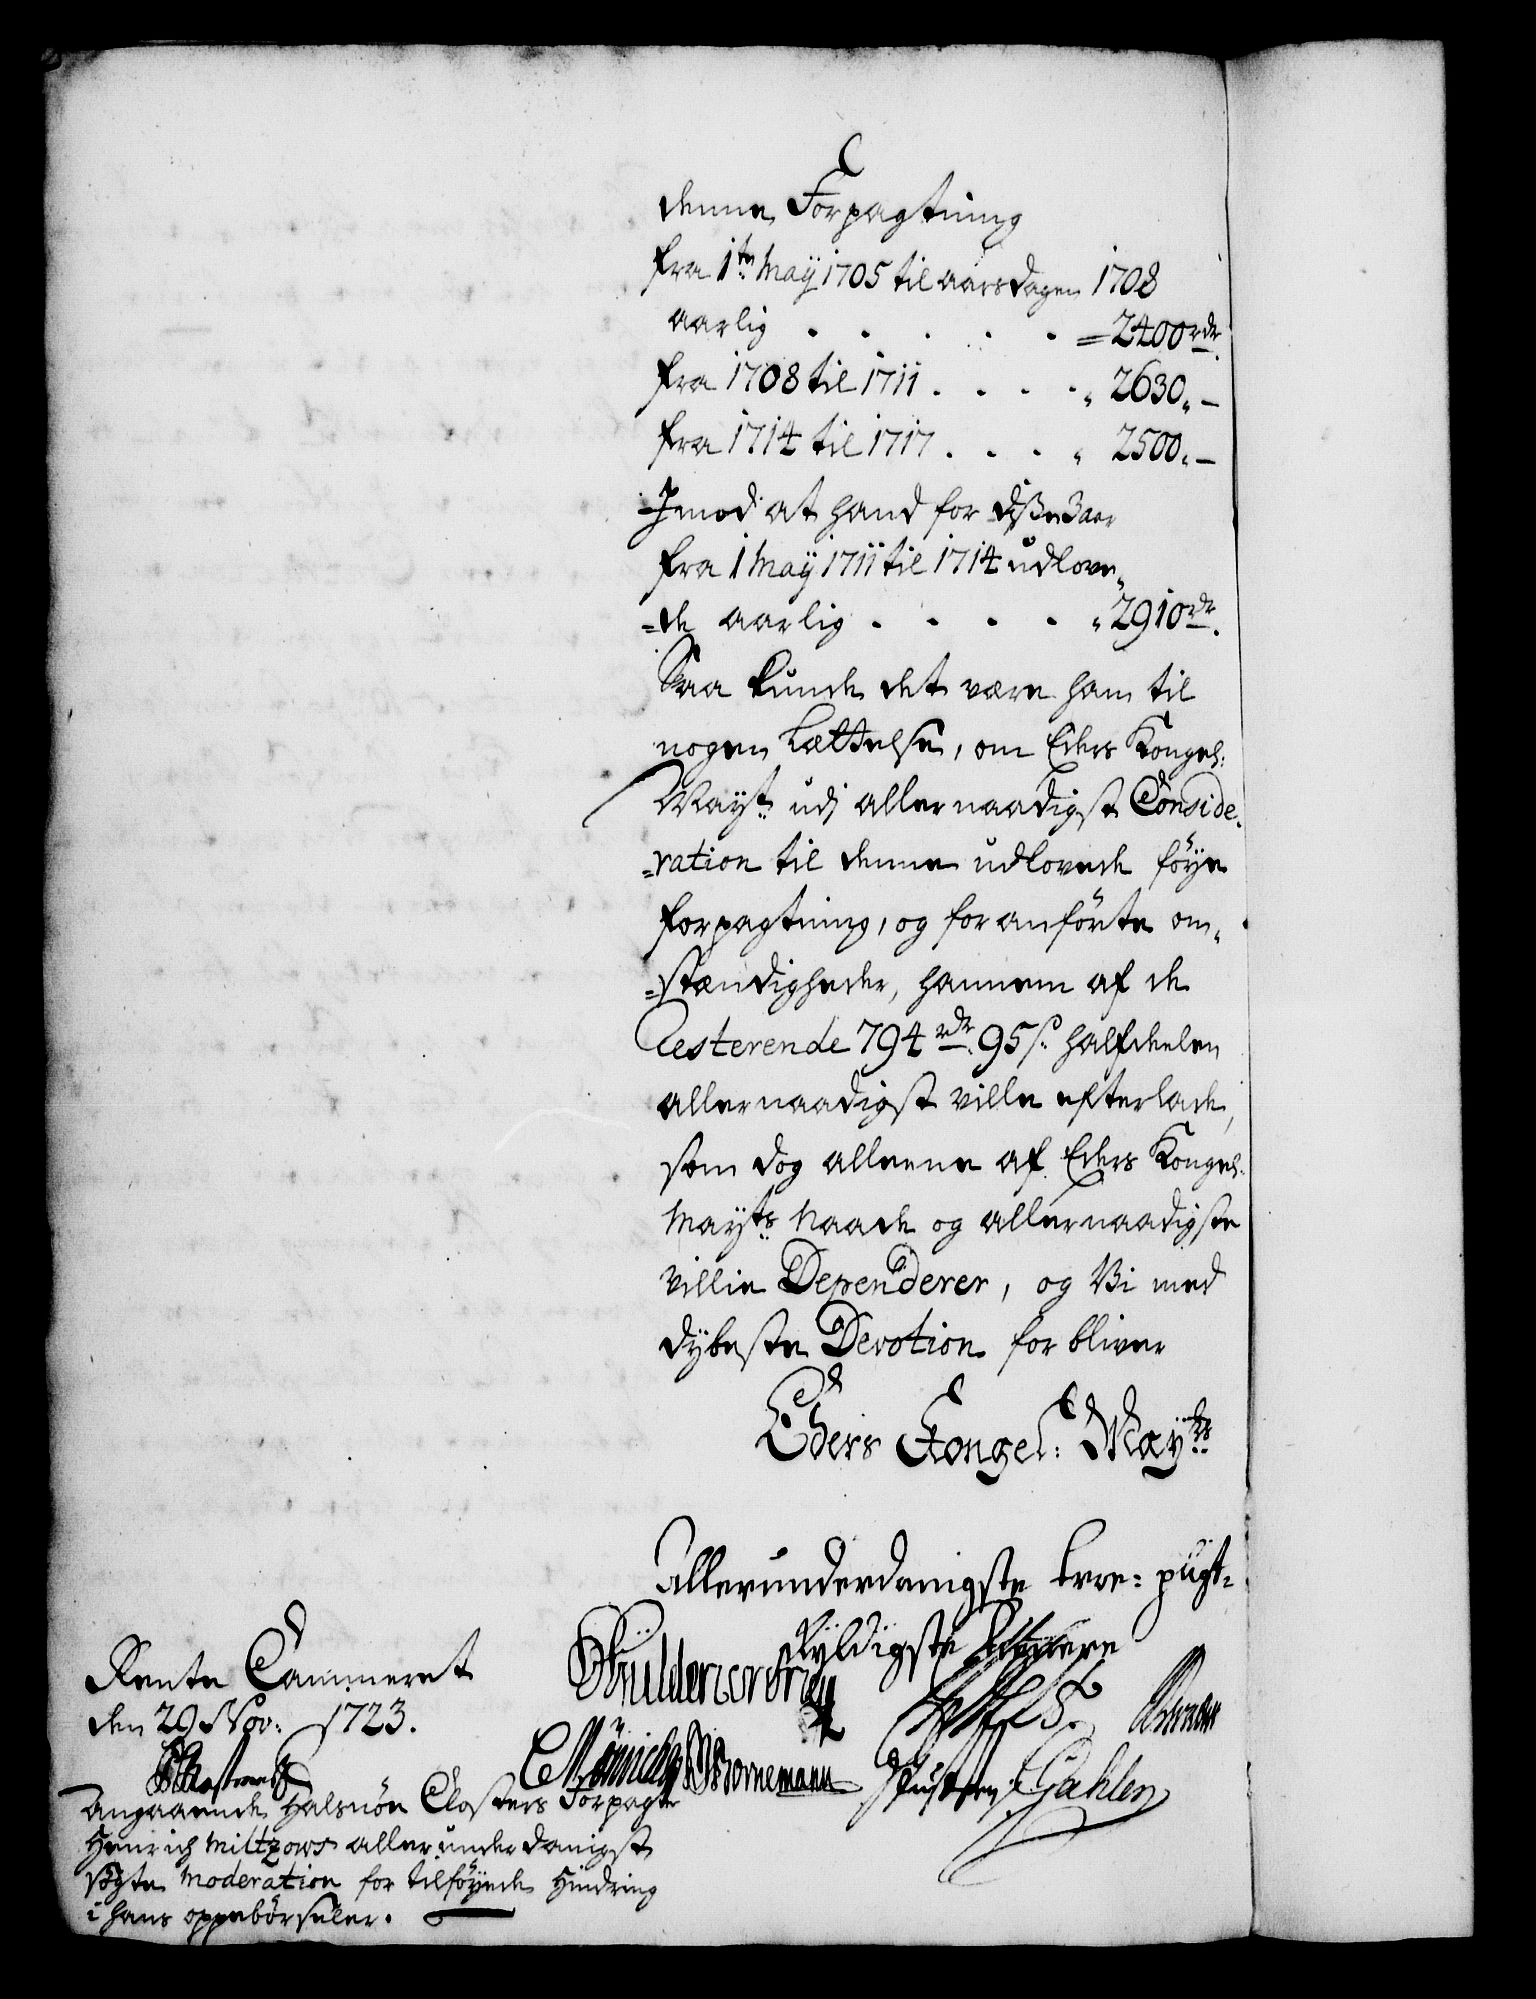 denne Forpagtning
fra 1te May 1705 til aarsdagen 1708
aarlig . . . . . = 2400 rdr.
fra 1708 til 1711 . . . . „ 2630 „ —
fra 1714 til 1717 . . . „ 2500 „ —
Imod at hand for disse 3 aar
fra 1 May 1711 til 1714 udlove„
=de aarlig . . . . „ 2910 rdr.
Saa kunde det være ham til
nogen Lættelse, om Eders Kongel:
Mayt: udj allernaadigst Conside„
=ration til denne udlovede föye
forpagtning, og for anförte om„
=stændigheder, hannem af de
Resterende 794 rdr. 95 s. halfdeelen
allernaadigst ville efterlade,
som dog alleene af Eders Kongel:
Mayts: Naade og allernaadigste
Villie Dependerer, og Vi med
dybeste Devotion forbliver
Eders Kongel: Mayts:
Allerunderdanigste troe= pligt=
skyldigste
Rente Cammeret
den 29 Nov: 1723.
CMünich Bornemann JGahlen
Angaaende Halsnöe Closters Forpagter
Henrich Miltzows allerunderdanigst
sögte Moderation for tilföyede Hindring
i hans oppebörseler.